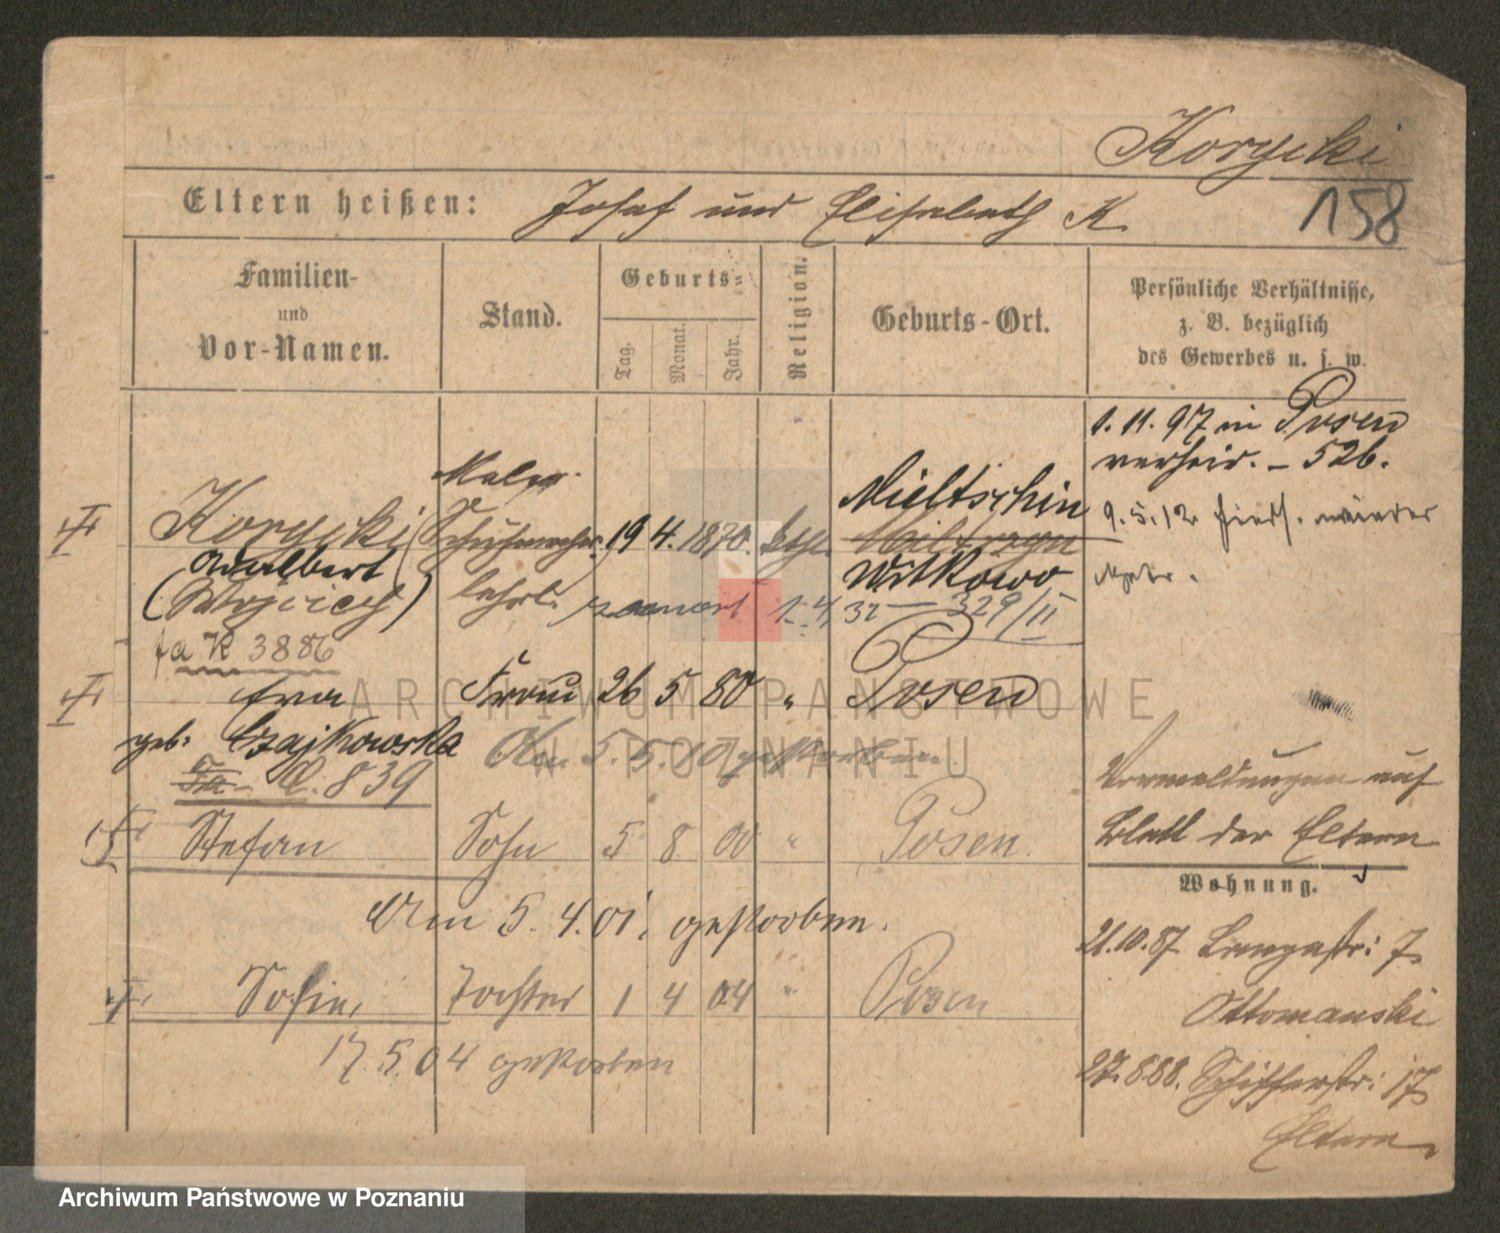 Korycki
158
Eltern heißen: Josef und Elisabeth K.
Familien-
und
Vor-Namen.
Stand.
Geburts-
Tag.
Monat.
Jahr.
Religion.
Geburts-Ort.
Persönliche Verhältnisse,
z. B. bezüglich
des Gewerbes u. s. w.
1. 11. 97 in Posen
verheir. - 526.
9. 5. 12
Maler
Mieltschin
Korycki Schuhmacher 19 4. 1870. kth.
Adalbert Witkowo
(Wojciech) lehrl. 1. 4. 32 - 329/II
fa K 3886
Eva Frau 26 5 80 " Posen
geb. Czajkowska Am 5. 5. 10 gestorben.
839
Vormeldungen auf
Blatt der Eltern
Stefan Sohn 5 8 00 " Posen.
Am 5. 4. 01. gestorben.
Sofie, Tochter 1 4 04 " Posen
17. 5. 04 gestorben
Wohnung.
21. 10. 87 Langestr: 7
Ottomanski
27. 8. 88. Schifferstr: 17
Eltern
ARCHIWUM PAŃSTWOWE
W POZNANIU
Archiwum Państwowe w Poznaniu